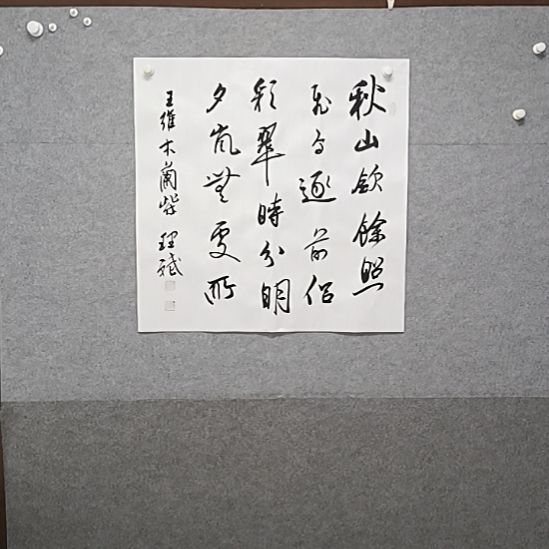 秋山敛餘照
飛鳥逐前侣
彩翠時分明
夕嵐無處所
王維木蘭柴 理斌